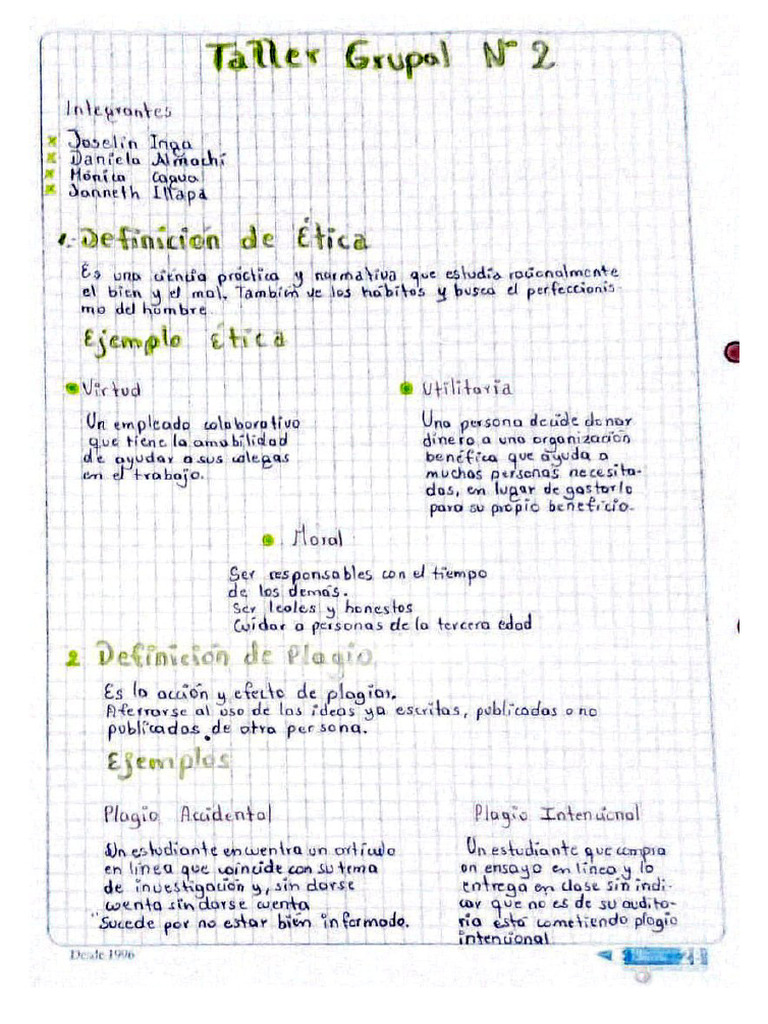 Taller Grupal N° 2
Integrantes
x Joselin Inga
x Daniela Almachi
x Mónica Cagua
x Janneth Illapa
1.- Definición de Ética
Es una ciencia práctica y normativa que estudia racionalmente
el bien y el mal. También ve los hábitos y busca el perfeccionis-
mo del hombre.
Ejemplo Ética
Virtud
Un empleado colaborativo
que tiene la amabilidad
de ayudar a sus colegas
en el trabajo.
Utilitaria
Una persona decide donar
dinero a una organización
benéfica que ayuda a
muchas personas necesita-
das, en lugar de gastarlo
para su propio beneficio.
Moral
Ser responsables con el tiempo
de los demás.
Ser leales y honestos
Cuidar a personas de la tercera edad
2 Definición de Plagio
Es la acción y efecto de plagiar.
Aferrarse al uso de las ideas ya escritas, publicadas o no
publicadas de otra persona.
Ejemplos
Plagio Accidental
Un estudiante encuentra un artículo
en línea que coincide con su tema
de investigación y, sin darse
cuenta sin darse cuenta
"Sucede por no estar bien informado.
Plagio Intencional
Un estudiante que compra
un ensayo en línea y lo
entrega en clase sin indi-
car que no es de su audito-
ria está cometiendo plagio
intencional
Desde 1996